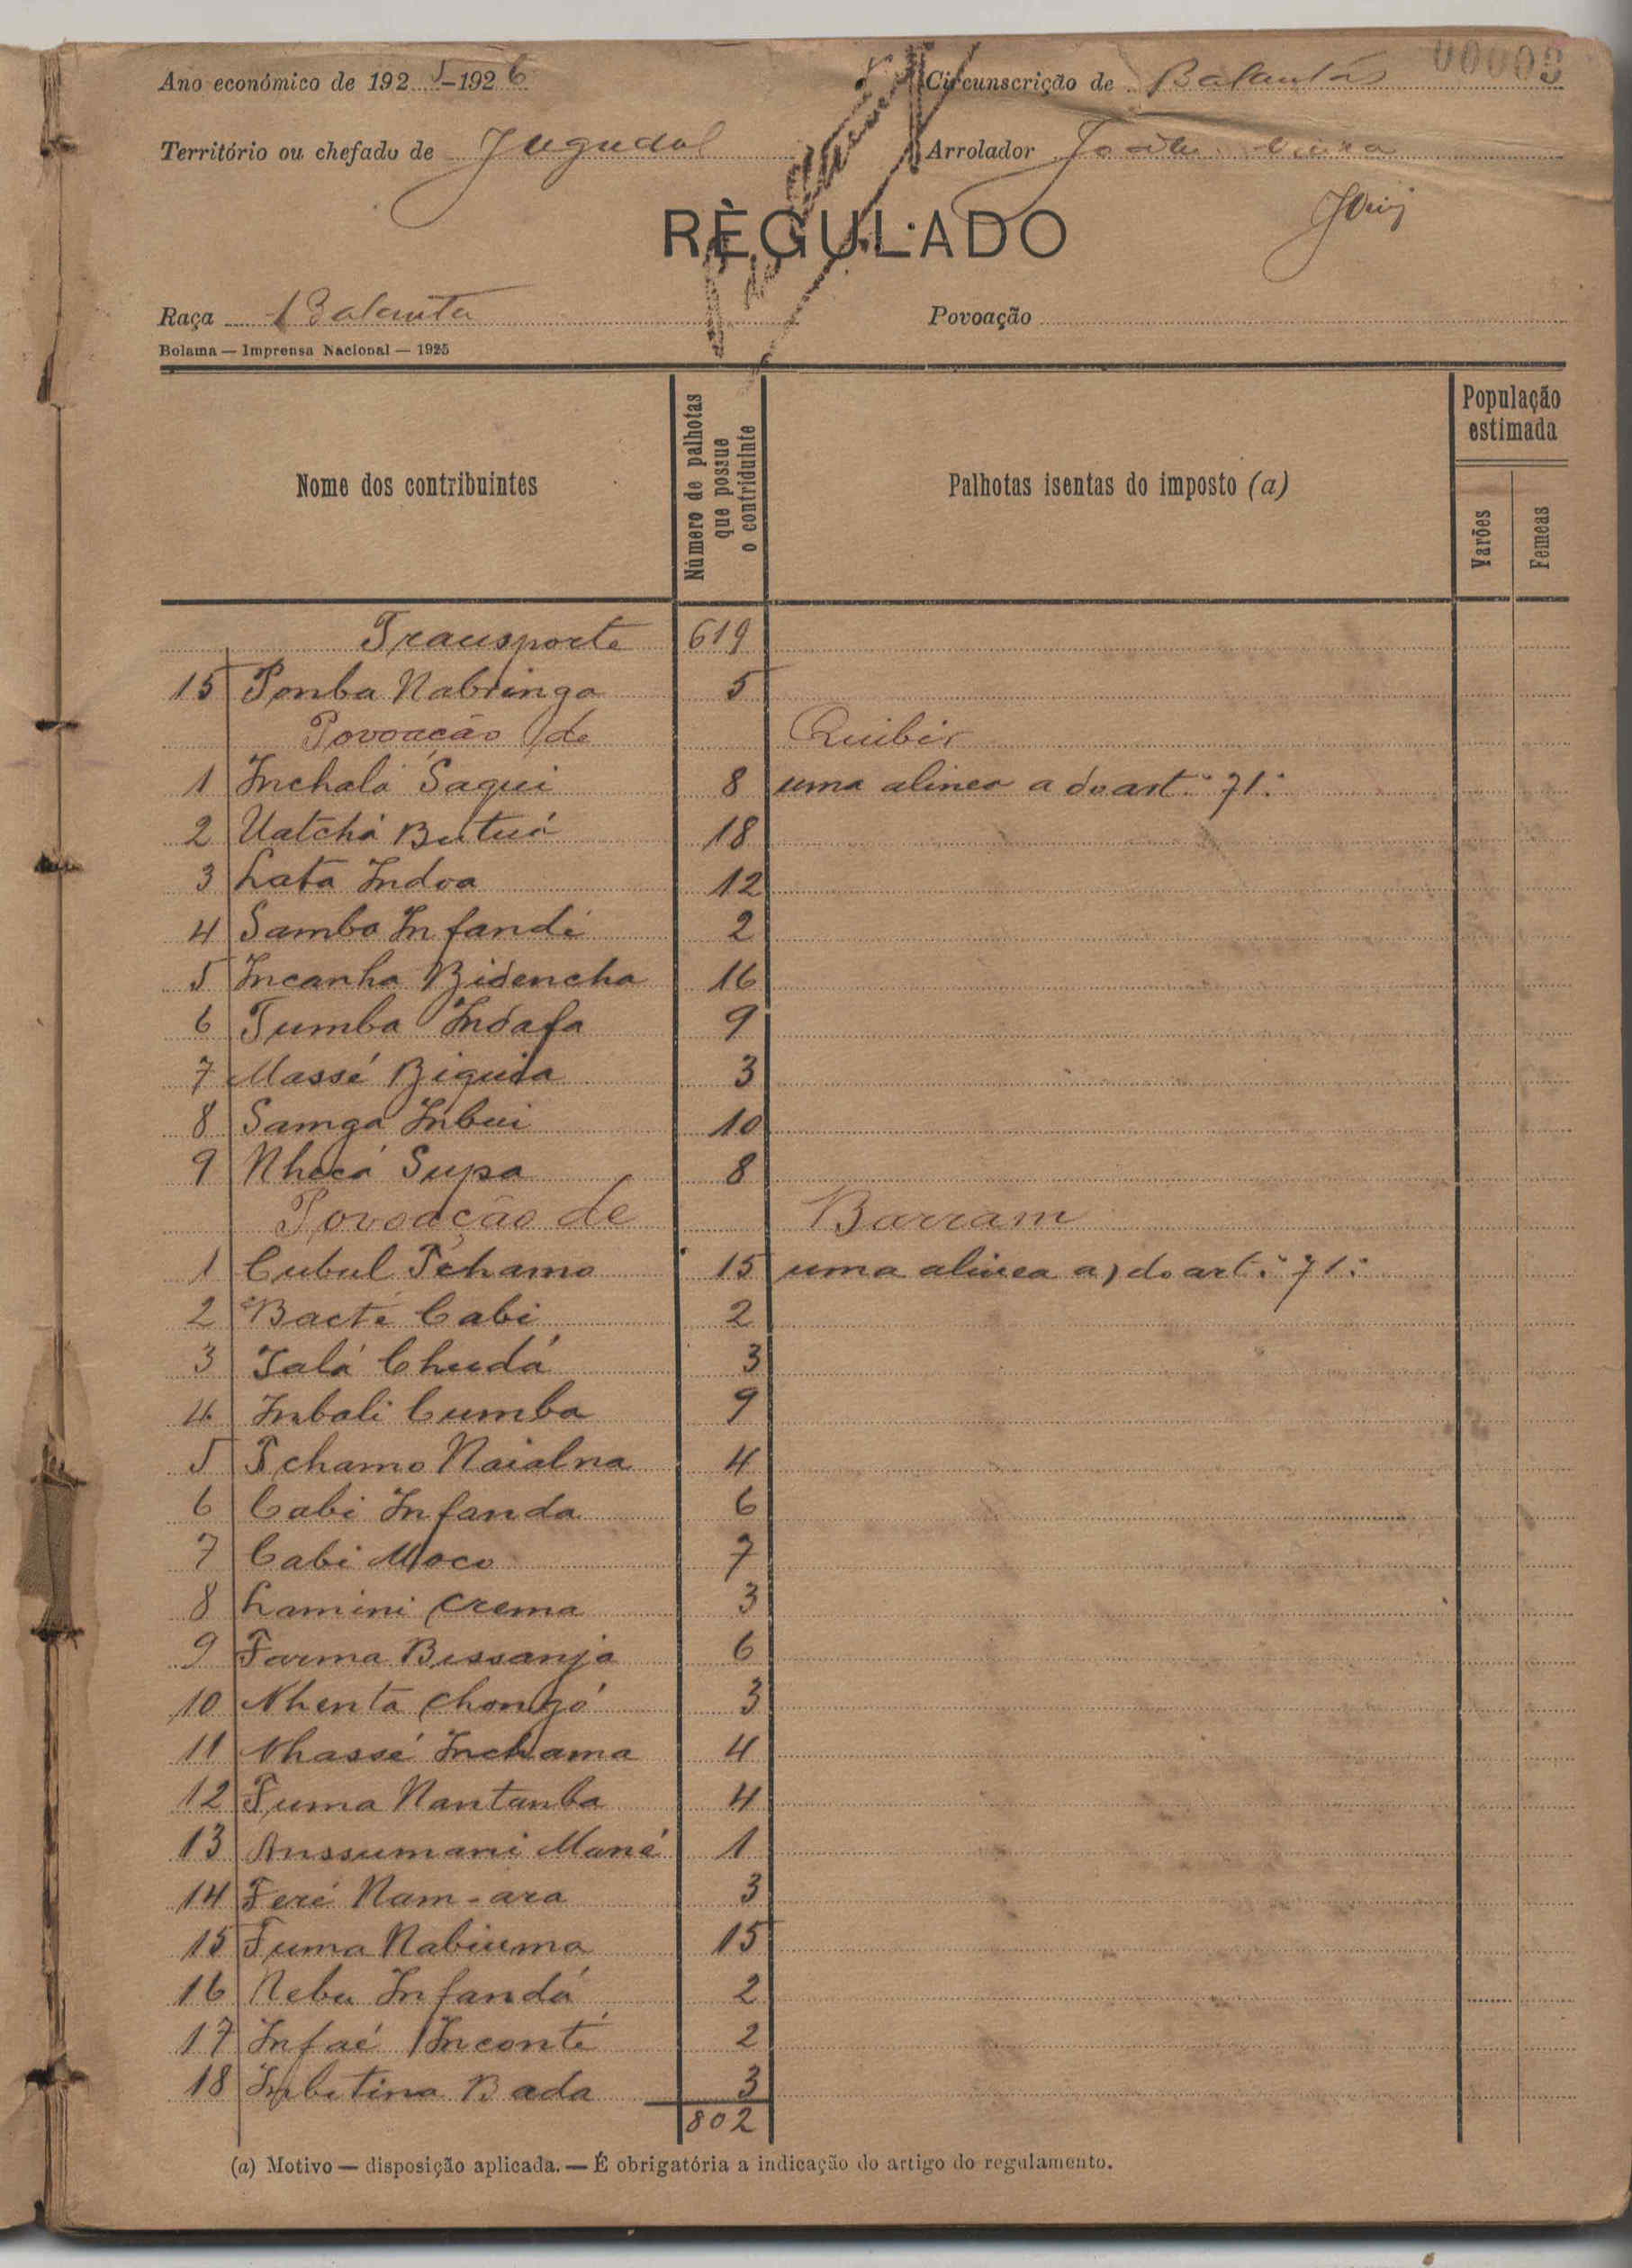 00009
Ano económico de 1925-1926 Circunscrição de Balantas
Território ou chefado de Jugudul Arrolador João Vieira
RÈGULADO
Raça Balanta Povoação
Bolama — Imprensa Nacional — 1925
Nome dos contribuintes
Número de palhotas que possue o contriduinte
Palhotas isentas do imposto (a)
População estimada
Varões
Femeas
Transporte 619
15 Ponba Nabringa 5
Povoação de Quibir
1 Inchalá Sagui 8 uma alinea a do art.º 71.º
2 Uatchá Butuá 18
3 Lata Indoa 12
4 Sambo Infandi 2
5 Incanha Bidencha 16
6 Tumba Indafa 9
7 Massé Biguida 3
8 Samga Inbui 10
9 Nhacá Supa 8
Povoação de Barram
1 Cubul Tchamo 15 uma alinea a) do art.º 71.º
2 Bacté Cabi 2
3 Talá Chudá 3
4 Imbali Cumba 9
5 Tchamo Naialna 4
6 Cabi Infanda 6
7 Cabi Moco 7
8 Lamini Crema 3
9 Farma Bissanja 6
10 Nhenta Chongó 3
11 Nhassé Inchama 4
12 Fuma Nantanba 4
13 Anssumani Mané 1
14 Feré Nam-ara 3
15 Fuma Nabiuma 15
16 Nebu Infandá 2
17 Infaé Inconté 2
18 Imbitina Bada 3
802
(a) Motivo — disposição aplicada. — É obrigatória a indicação do artigo do regulamento.